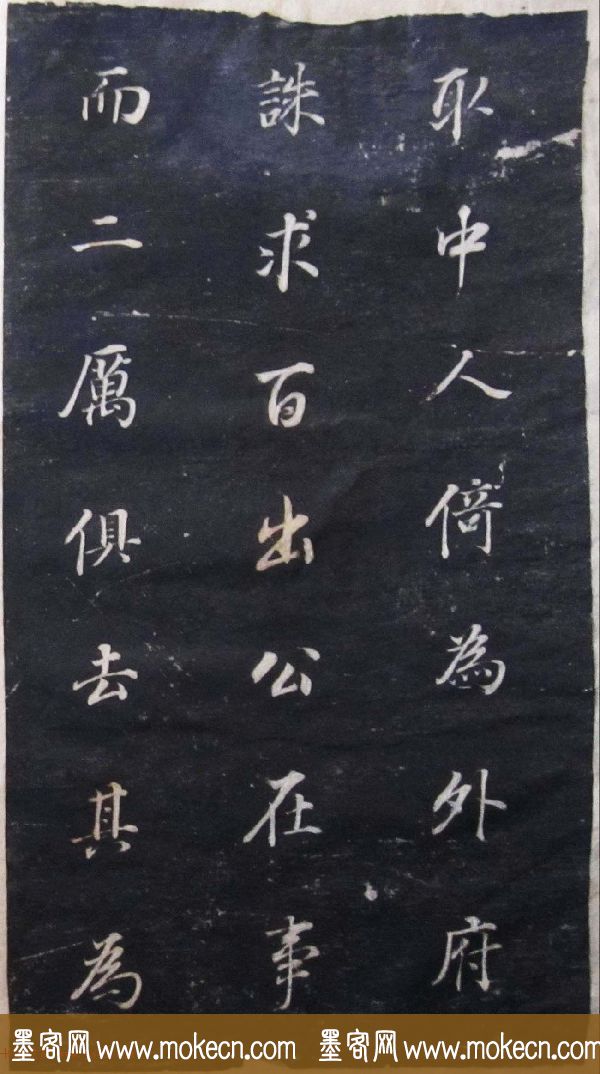 取中人倚為外府
誅求百出公在事
而二厲俱去其為
墨客网 www.mokecn.com 墨客网 www.mokecn.com